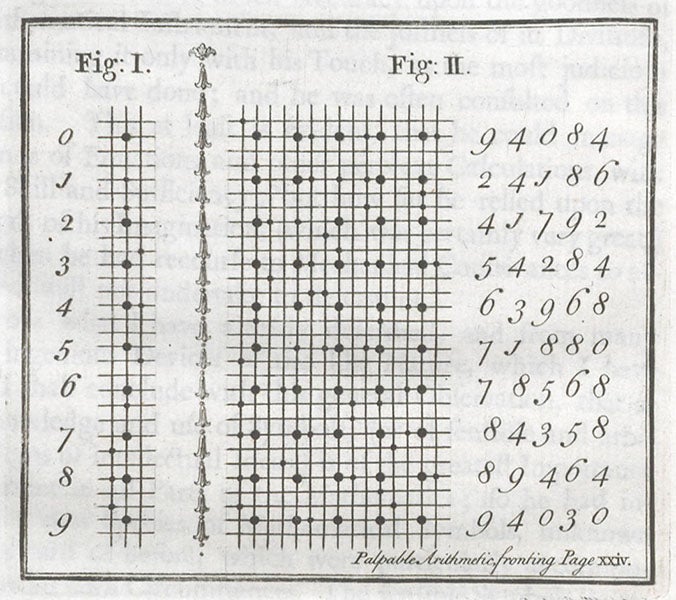 Fig: I. Fig: II.
0 94084
1 24186
2 41792
3 54284
4 63968
5 71880
6 78568
7 84358
8 89464
9 94030
Palpable Arithmetic, fronting Page XXIV.